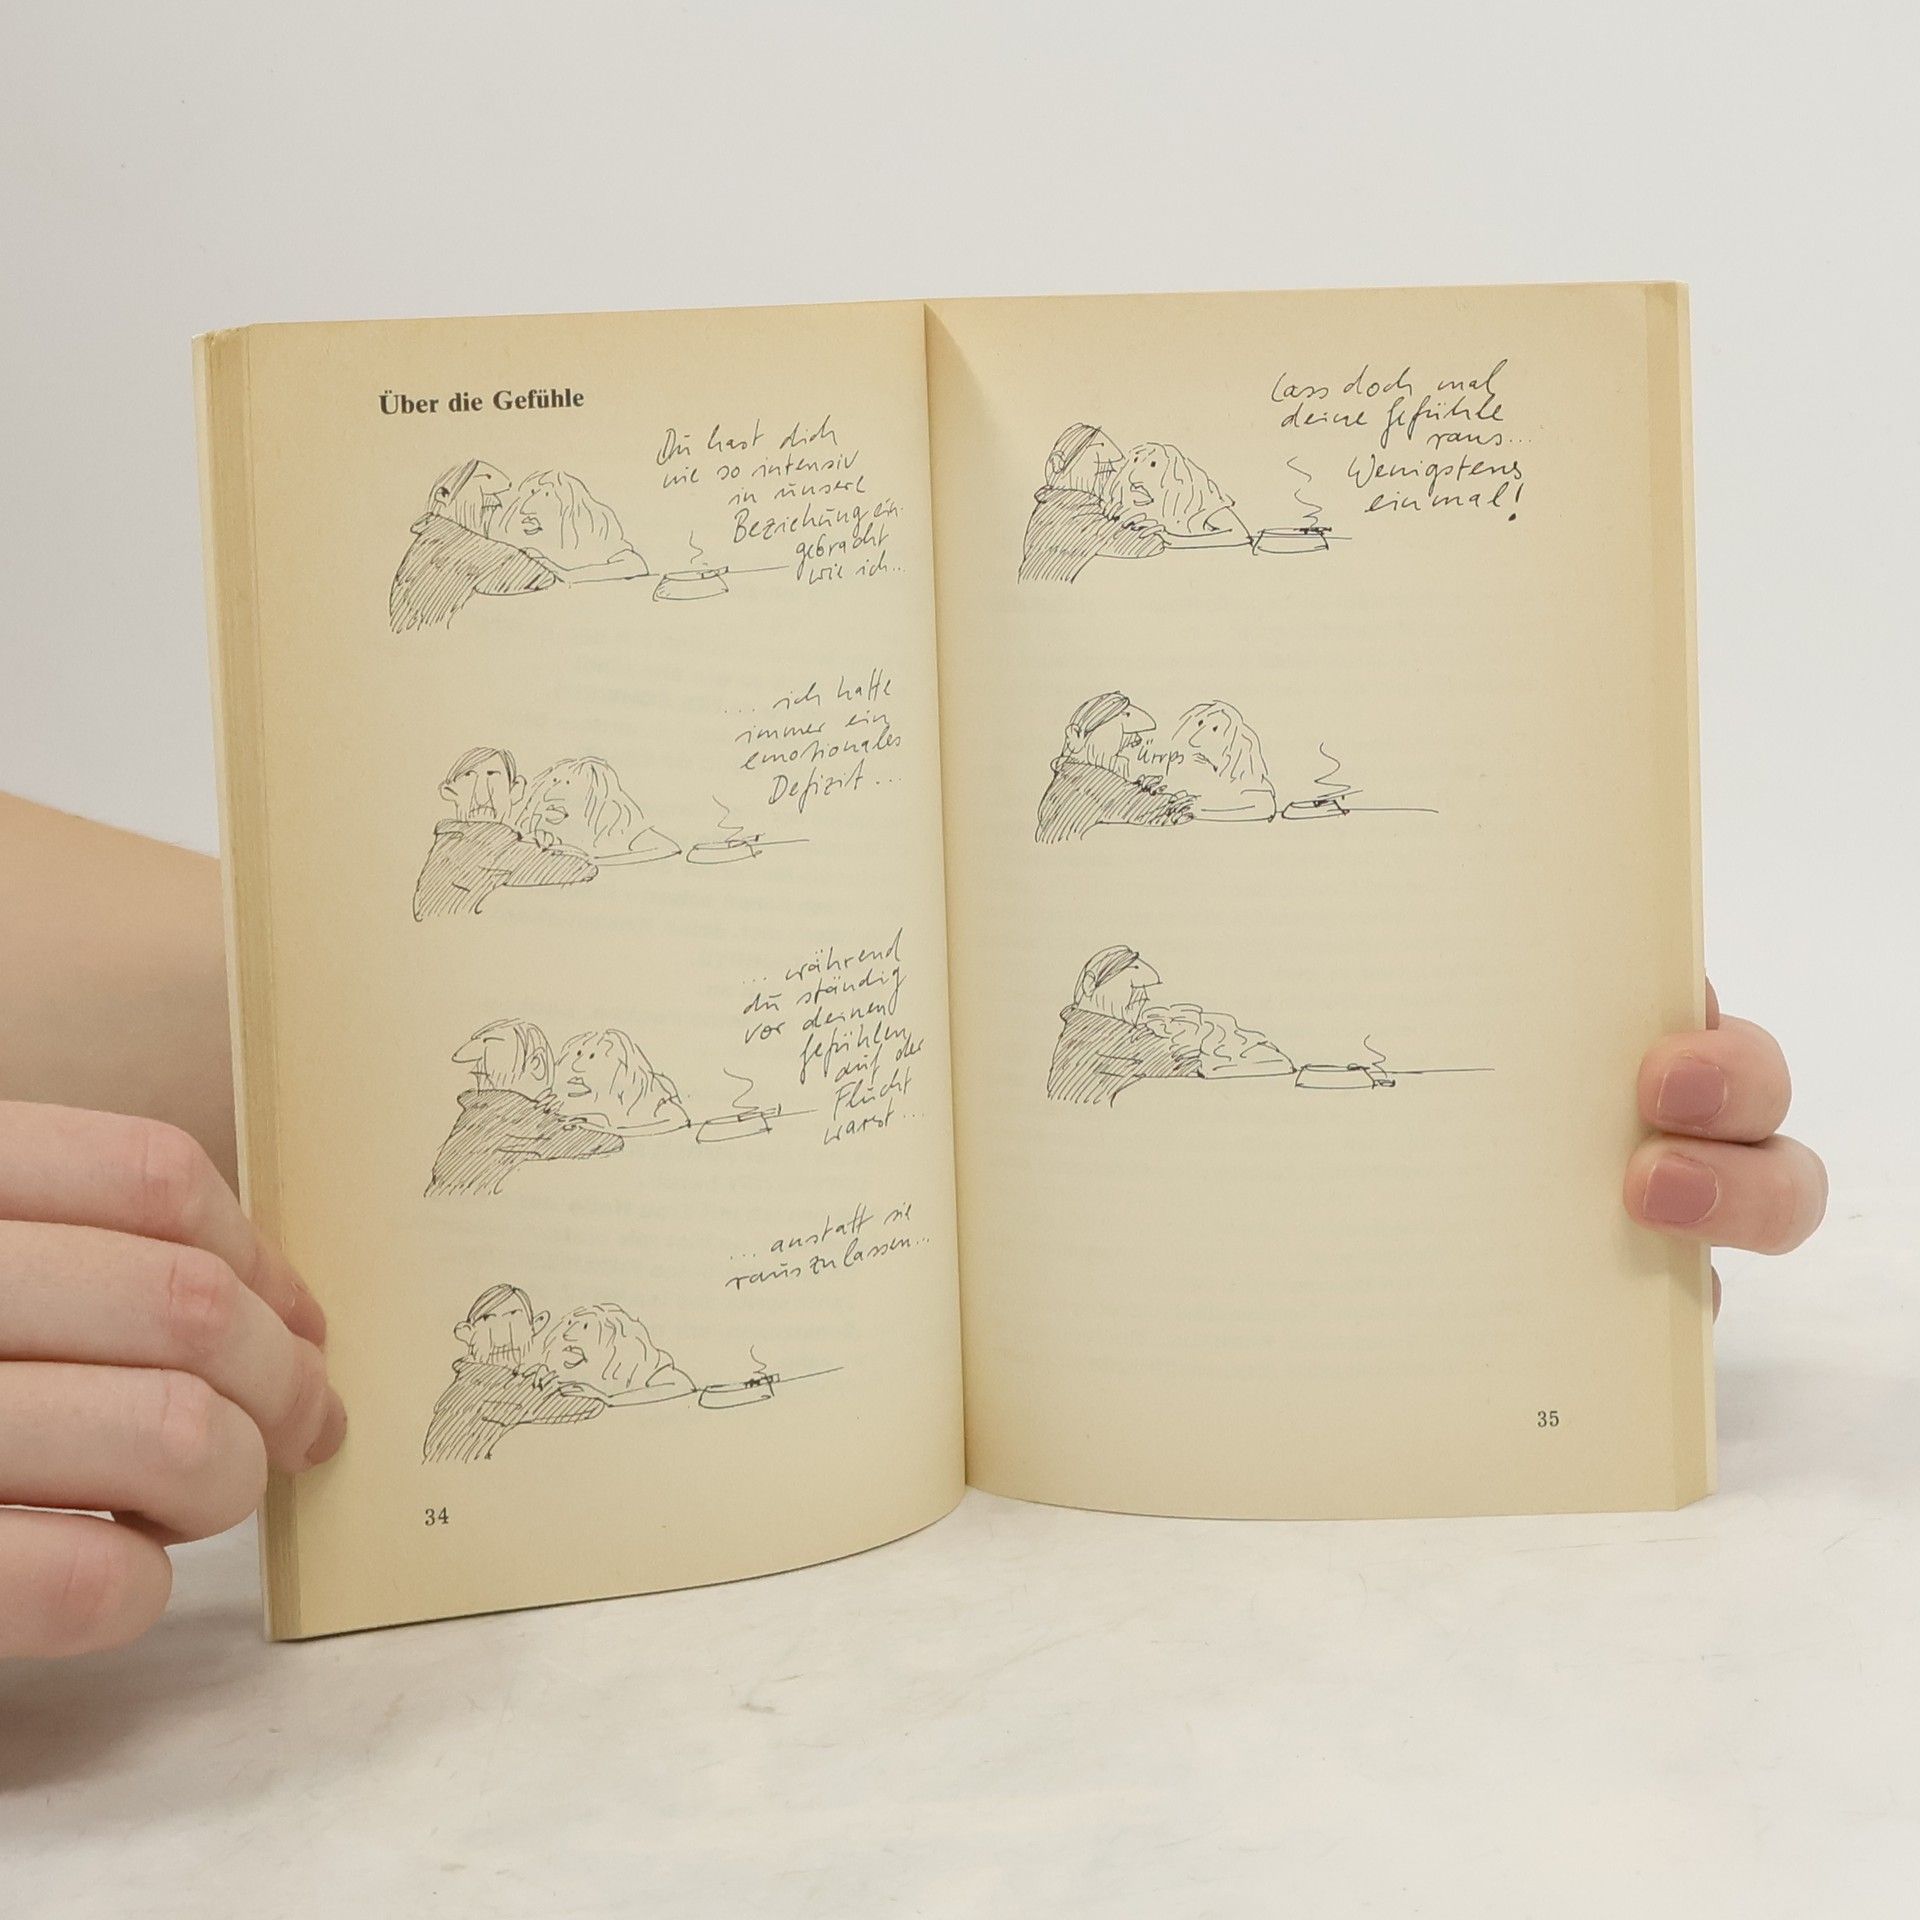 Über die Gefühle
Du hast dich
nie so intensiv
in unsere
Beziehung ein-
gebracht
wie ich...
... ich hatte
immer ein
emotionales
Defizit ...
... während
du ständig
vor deinen
Gefühlen
auf der
Flucht
warst ...
... anstatt sie
rauszulassen...
34
Lass doch mal
deine Gefühle
raus...
Wenigstens
einmal!
Ürrps
35